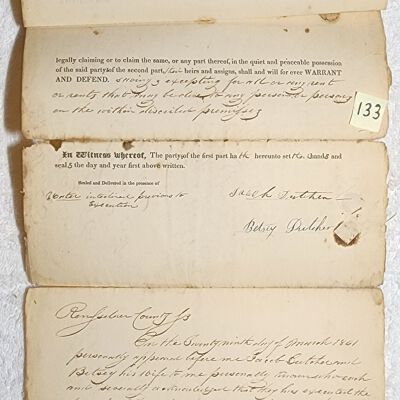 legally claiming or to claim the same, or any part thereof, in the quiet and peaceable possession
of the said party of the second part, their heirs and assigns, shall and will for ever WARRANT
AND DEFEND. Saving & excepting for all or any rent
or rents that may be due to any person or persons
on the within described premises
133
In Witness whereof, The party of the first part ha ve hereunto set their hands and
seals the day and year first above written.
Sealed and Delivered in the presence of
interlined previous to
Execution
Jacob
Betsey
Rensselaer County Ss
On the Twenty ninth day of March 1861
personally appeared before me Jacob and
Betsey his wife to me personally known who each
and severally acknowledged that they executed the